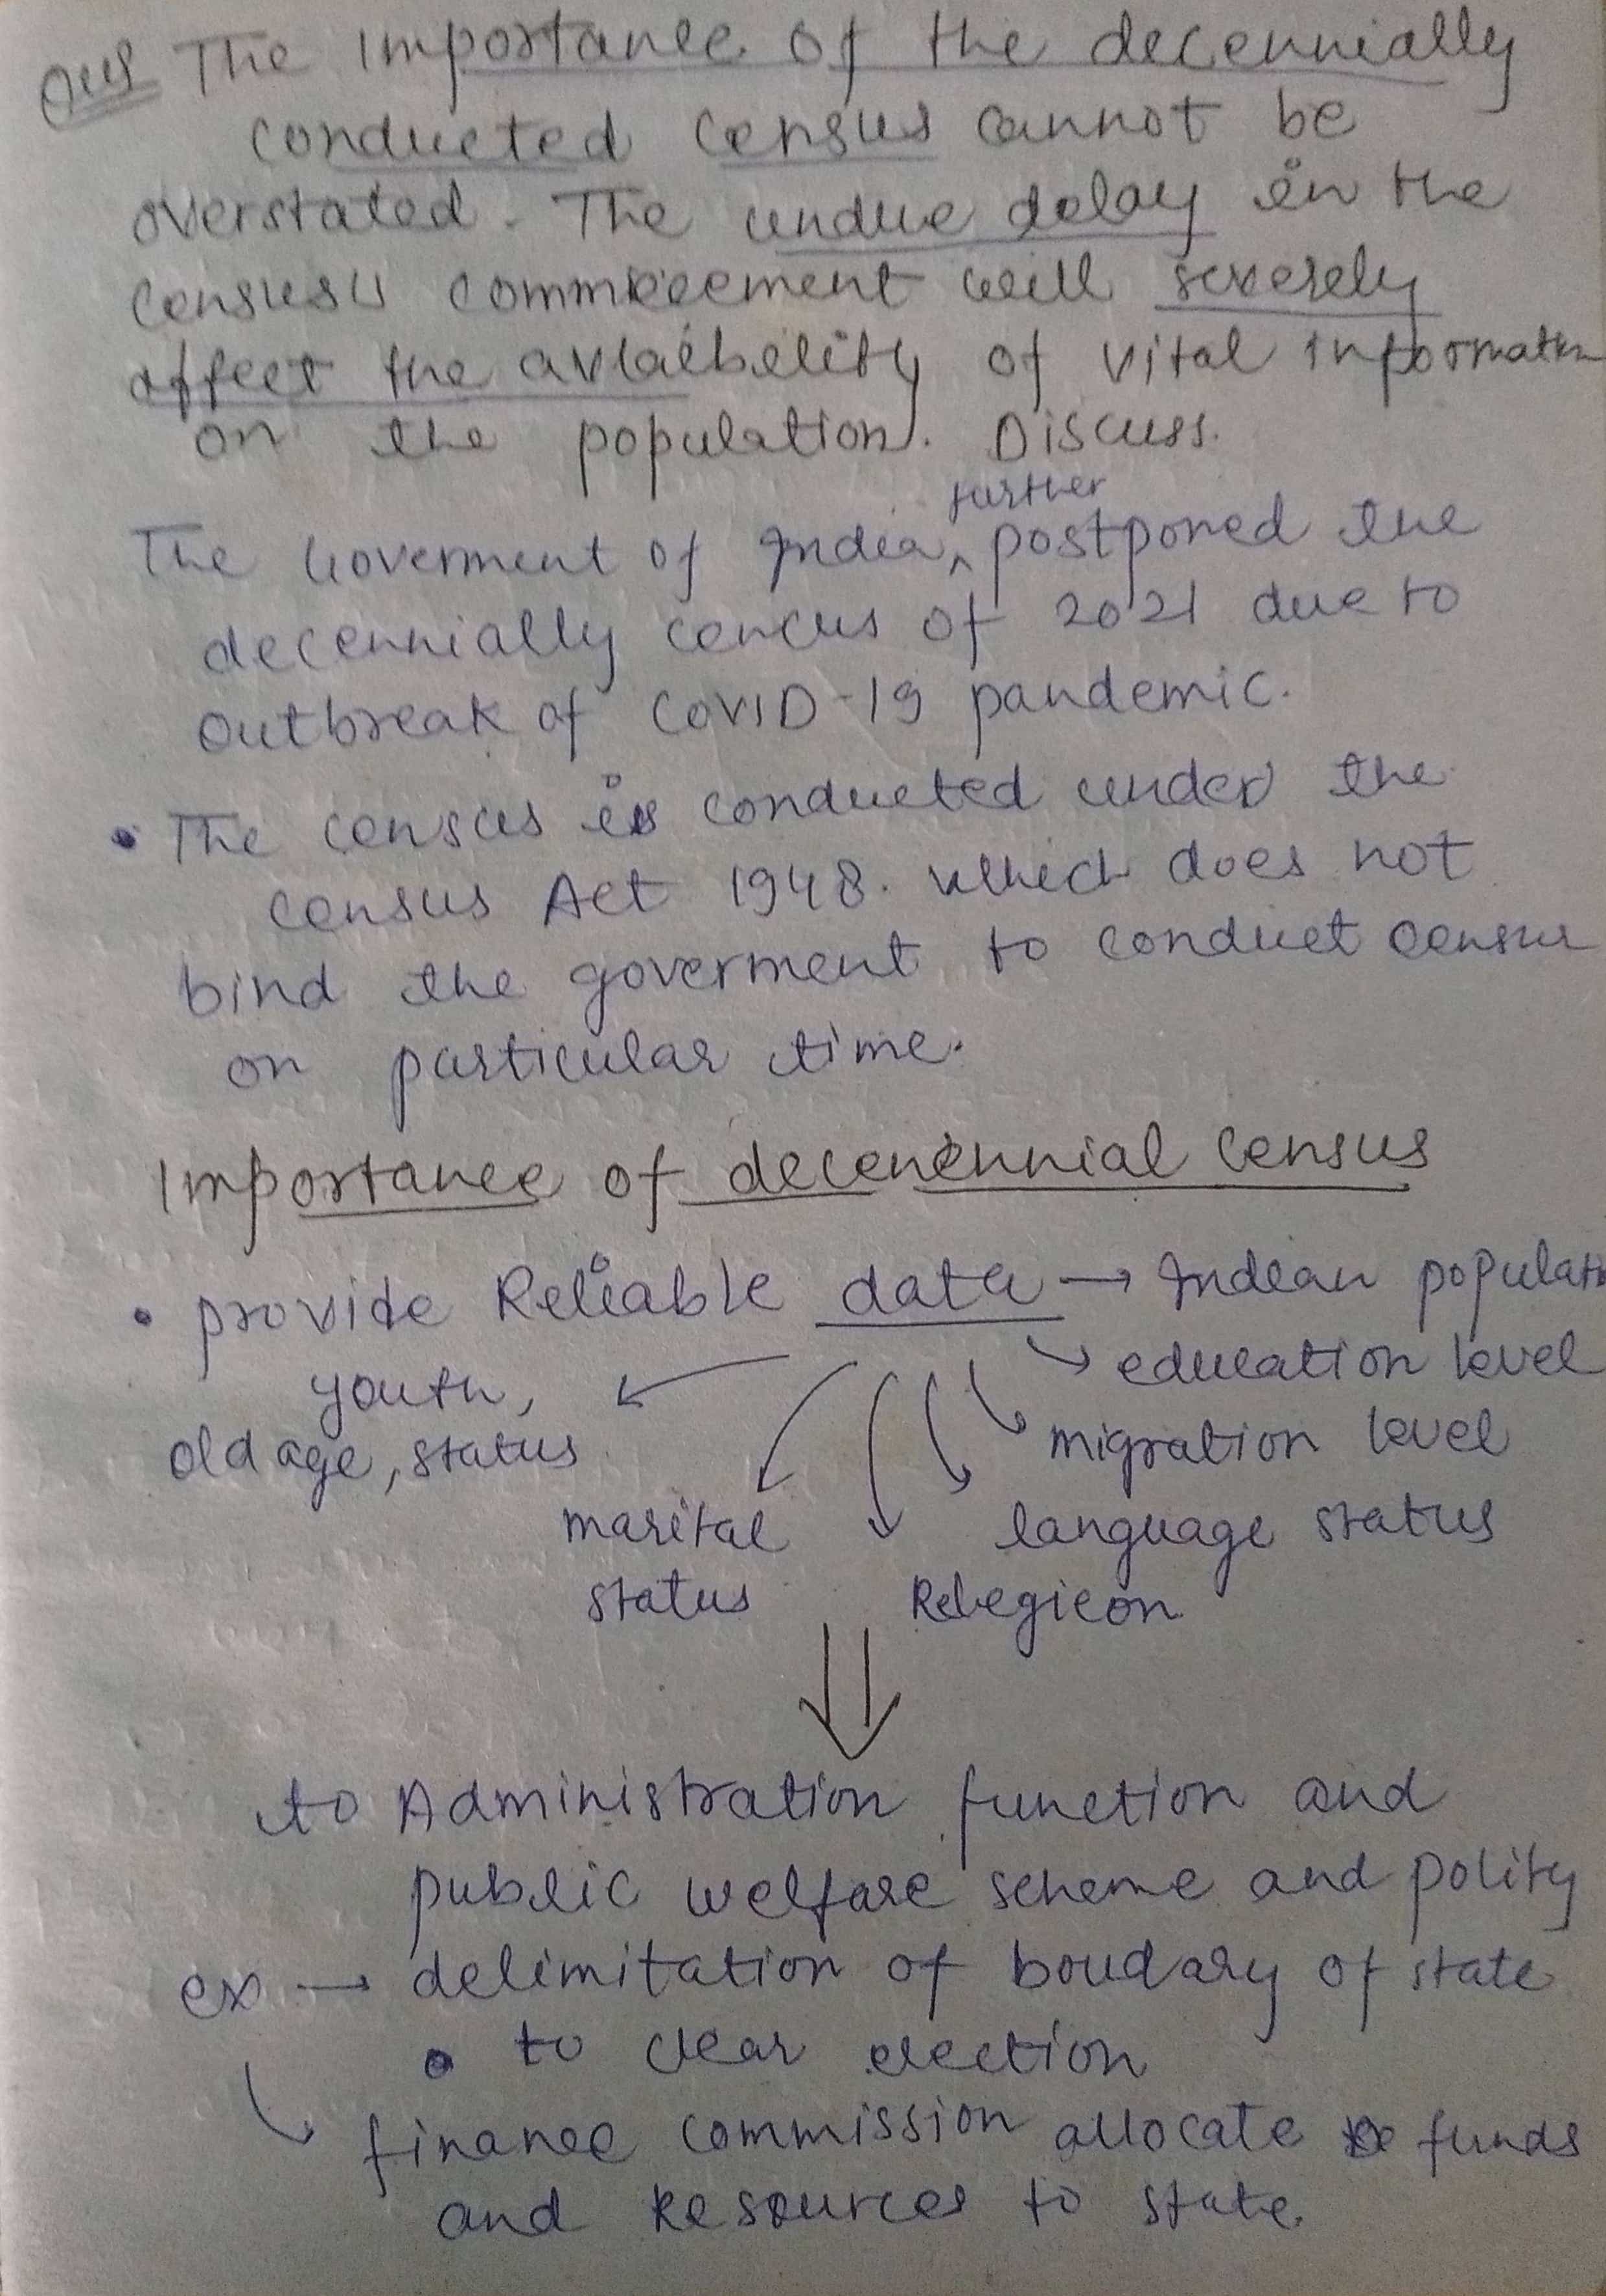 Ques The Importance of the decennially
conducted census cannot be
overstated. The undue delay in the
census commeeement will severely
affect the avlaibelity of vital information
on the population. Discuss.
further
The Goverment of India, ^ postponed the
decennially cencus of 2021 due to
outbreak of COVID-19 pandemic.
• The census is conducted under the
census Act 1948. which does not
bind the goverment to conduct census
on particular time.
Importance of decenennial census
• provide Reliable data → Indian populati
youth, education level
old age, status migration level
marital language status
status Relegieon
to Administration function and
public welfare scheme and polity
ex → delimitation of boudary of state
• to clear election
finance commission allocate funds
and Resources to state.